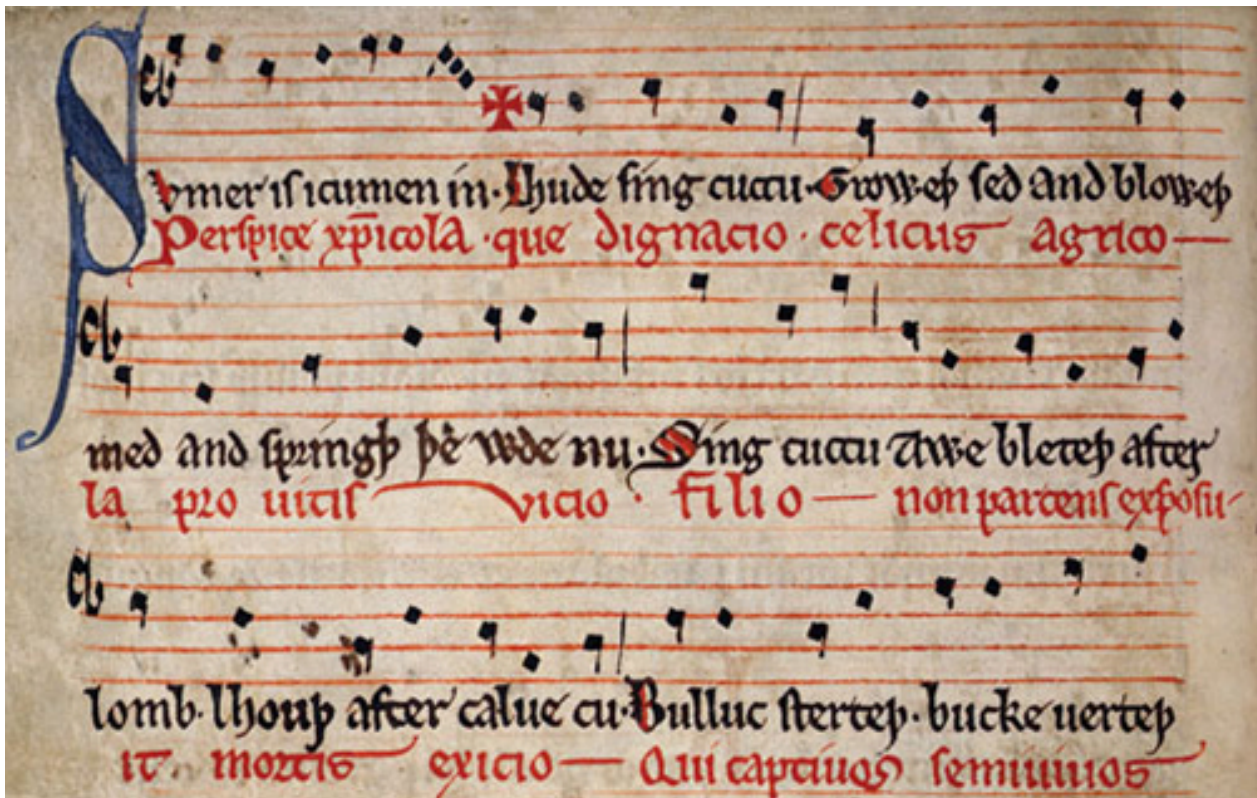 Svmer is icumen in. Lhude sing cuccu. Groweþ sed and bloweþ
Perspice xp̄icola. que dignacio. celicus agrico—
med and springþ þe wde nu. Sing cuccu Awe bleteþ after
la pro uitis vicio. filio— non parcens exposu-
lomb. lhouþ after calue cu. Bulluc sterteþ. bucke uerteþ
it mortis exicio— Qui captiuos semiuiuos